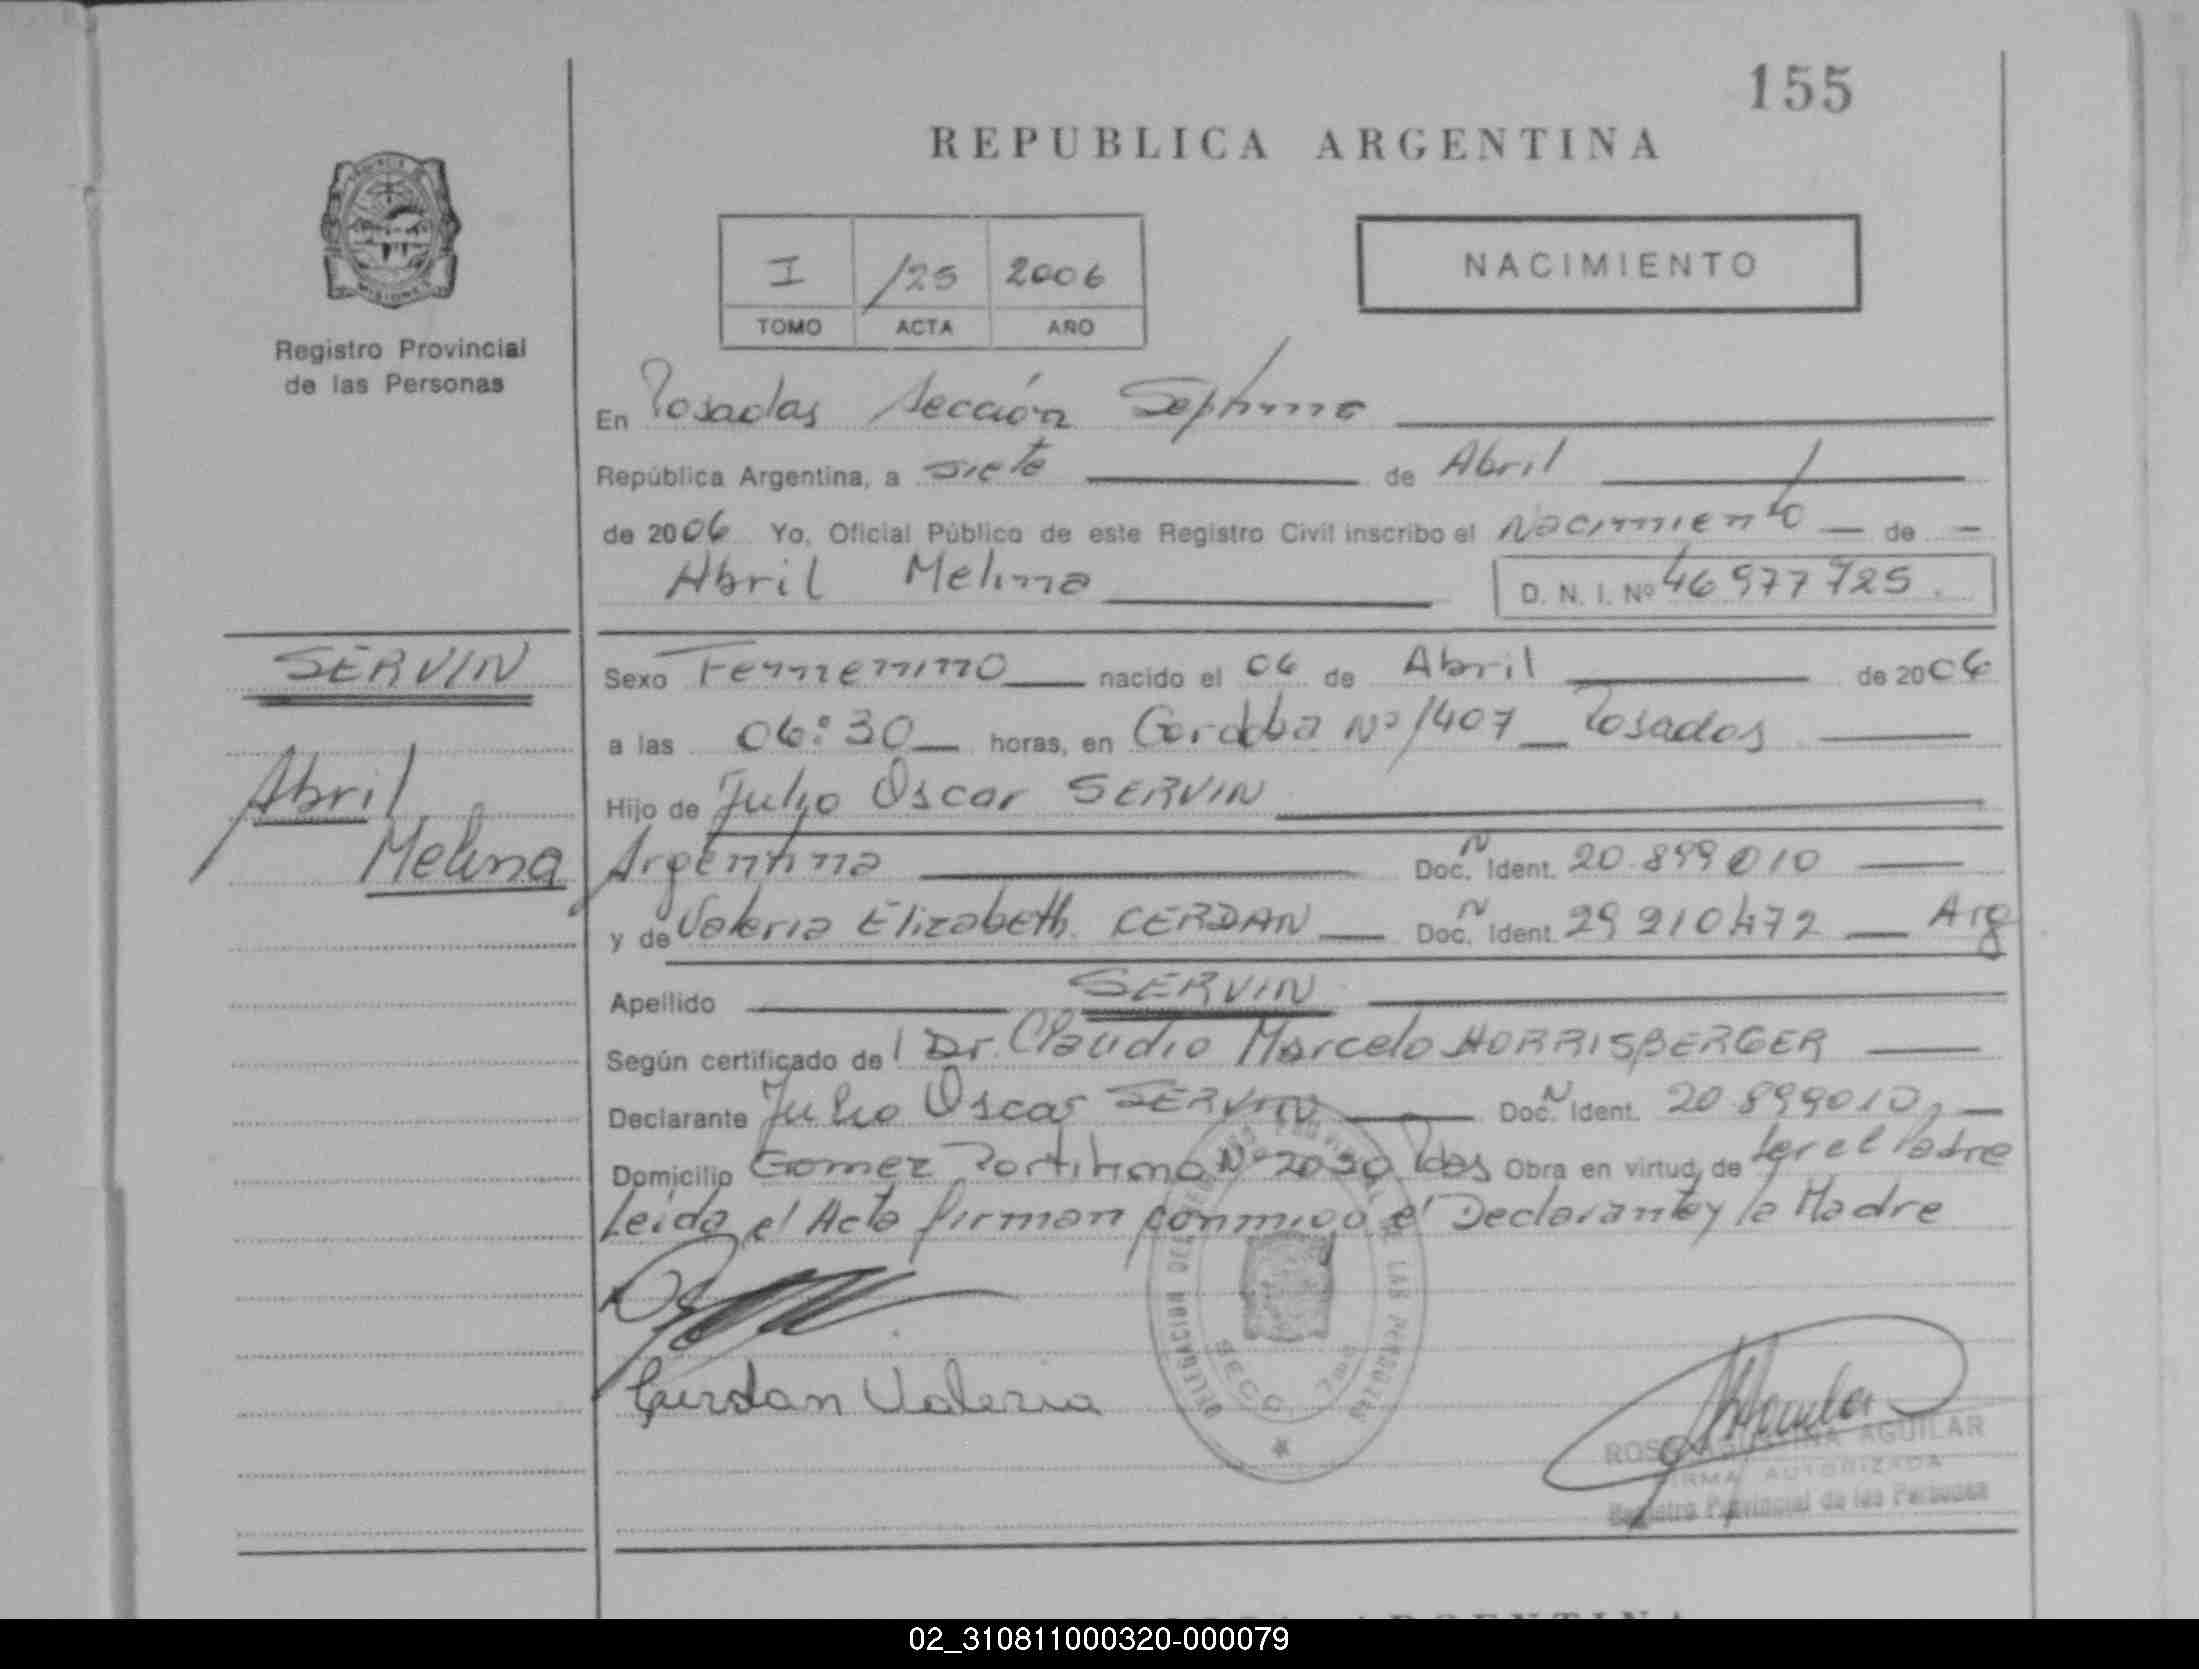 155
REPUBLICA ARGENTINA
PROVINCIA DE
MISIONES
Registro Provincial
de las Personas
I /25 2006
TOMO ACTA AÑO
NACIMIENTO
En Posadas Sección Septima
República Argentina, a siete de Abril
de 2006 Yo, Oficial Público de este Registro Civil inscribo el Nacimiento de
Abril Melina D. N. I. Nº 46977725.
SERVIN
Abril
Melina
Sexo Femenino nacido el 06 de Abril de 2006
a las 06:30 horas, en Cordoba Nº 1407 Posadas
Hijo de Julio Oscar SERVIN
Argentina Doc. N Ident. 20.899010
y de Valeria Elizabeth CERDAN Doc. N Ident. 29210472 Arg
Apellido SERVIN
Según certificado de Dr. Claudio Marcelo HORRISBERGER
Declarante Julio Oscar SERVIN Doc. N Ident. 20.899010,
Domicilio Gomez Portihno Nº 2030 Pdas Obra en virtud de ser el Padre
Leida el Acta firman conmigo el Declarante y la Madre
Cerdan Valeria
DELEGACION DEL REGISTRO PROVINCIAL DE LAS PERSONAS
SECC. 7ma
ROSA AGUSTINA AGUILAR
FIRMA AUTORIZADA
Registro Provincial de las Personas
02_310811000320-000079